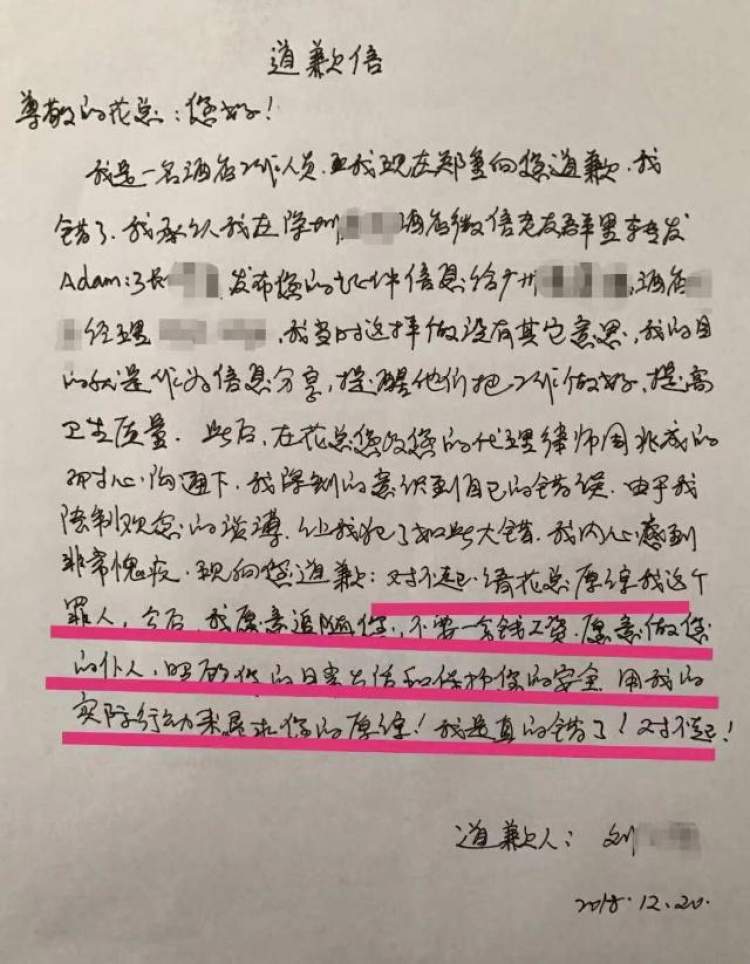 道歉信
尊敬的花总：您好！
我是一名酒店工作人员，我现在郑重向您道歉，我
错了，我承认我在深圳酒店微信老友群里转发
Adam：3长发布您的证件信息给广州酒店
经理，我当时这样做没有其它意思，我的目
的仅是作为信息分享，提醒他们把工作做好，提高
卫生质量。此后，在花总您及您的代理律师周兆成的
耐心沟通下，我深刻的意识到自己的错误。由于我
法制观念的淡薄，让我犯了如此大错，我内心感到
非常愧疚，现向您道歉：对不起，请花总原谅我这个
罪人，今后，我愿意追随您，不要一分钱工资，愿意做您
的仆人，照顾您的日常生活和保护您的安全，用我的
实际行动来恳求您的原谅！我是真的错了！对不起！
道歉人：刘
2018.12.20.